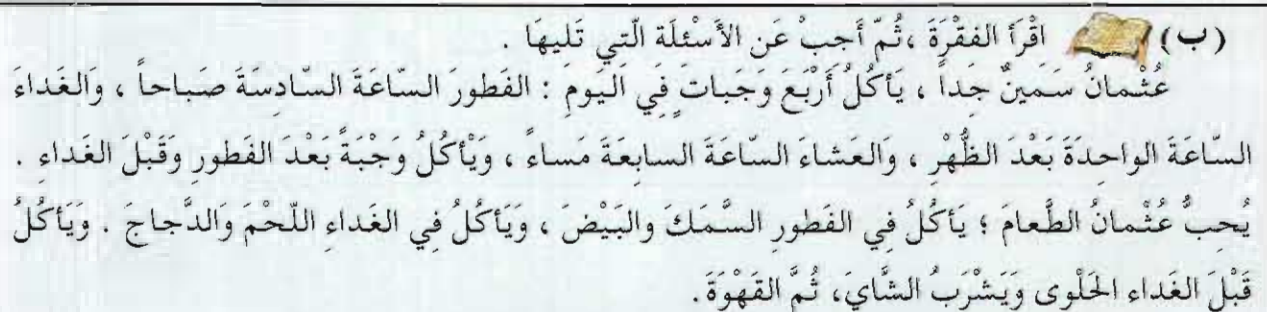 (ب) اقْرَأ الفِقْرَةَ ، ثُمَّ أَجِبْ عَنِ الأَسْئِلَة الَّتِي تَلِيهَا .
عُثْمانُ سَمِينٌ جِداً ، يَأكُلُ أَرْبَعَ وَجَباتٍ فِي اليَومِ : الفَطورَ السّاعَةَ السّادِسَةَ صَباحاً ، وَالغَداءَ
السّاعَةَ الواحِدَةَ بَعْدَ الظُّهْرِ ، وَالعَشاءَ السّاعَةَ السابِعَةَ مَساءً ، وَيْأكُلُ وَجْبَةً بَعْدَ الفَطورِ وَقَبْلَ الغَداءِ .
يُحِبُّ عُثْمانُ الطَّعامَ ؛ يَأكُلُ فِي الفَطورِ السَّمَكَ والبَيْضَ ، وَيَأكُلُ فِي الغَداءِ اللّحْمَ وَالدَّجاجَ . وَيَأكُلُ
قَبْلَ الغَداءِ الحَلْوى وَيَشْرَبُ الشَّايَ، ثُمَّ القَهْوَةَ .